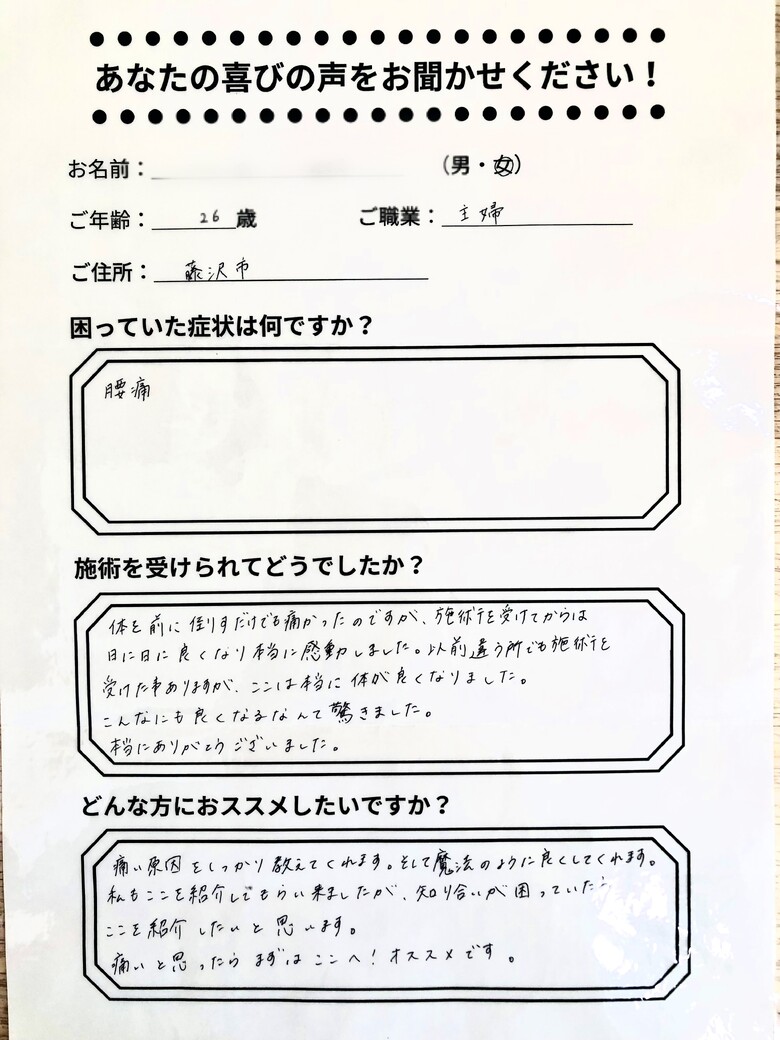 あなたの喜びの声をお聞かせください！
お名前： （男・女）
ご年齢： 26 歳 ご職業： 主婦
ご住所： 藤沢市
困っていた症状は何ですか？
腰痛
施術を受けられてどうでしたか？
体を前に倒すだけでも痛かったのですが、施術を受けてからは
日に日に良くなり本当に感動しました。以前違う所でも施術を
受けた事ありますが、ここは本当に体が良くなりました。
こんなにも良くなるなんて驚きました。
本当にありがとうございました。
どんな方におススメしたいですか？
痛い原因をしっかり教えてくれます。そして魔法のように良くしてくれます。
私もここを紹介してもらい来ましたが、知り合いが困っていたら
ここを紹介したいと思います。
痛いと思ったらまずはここへ！オススメです。